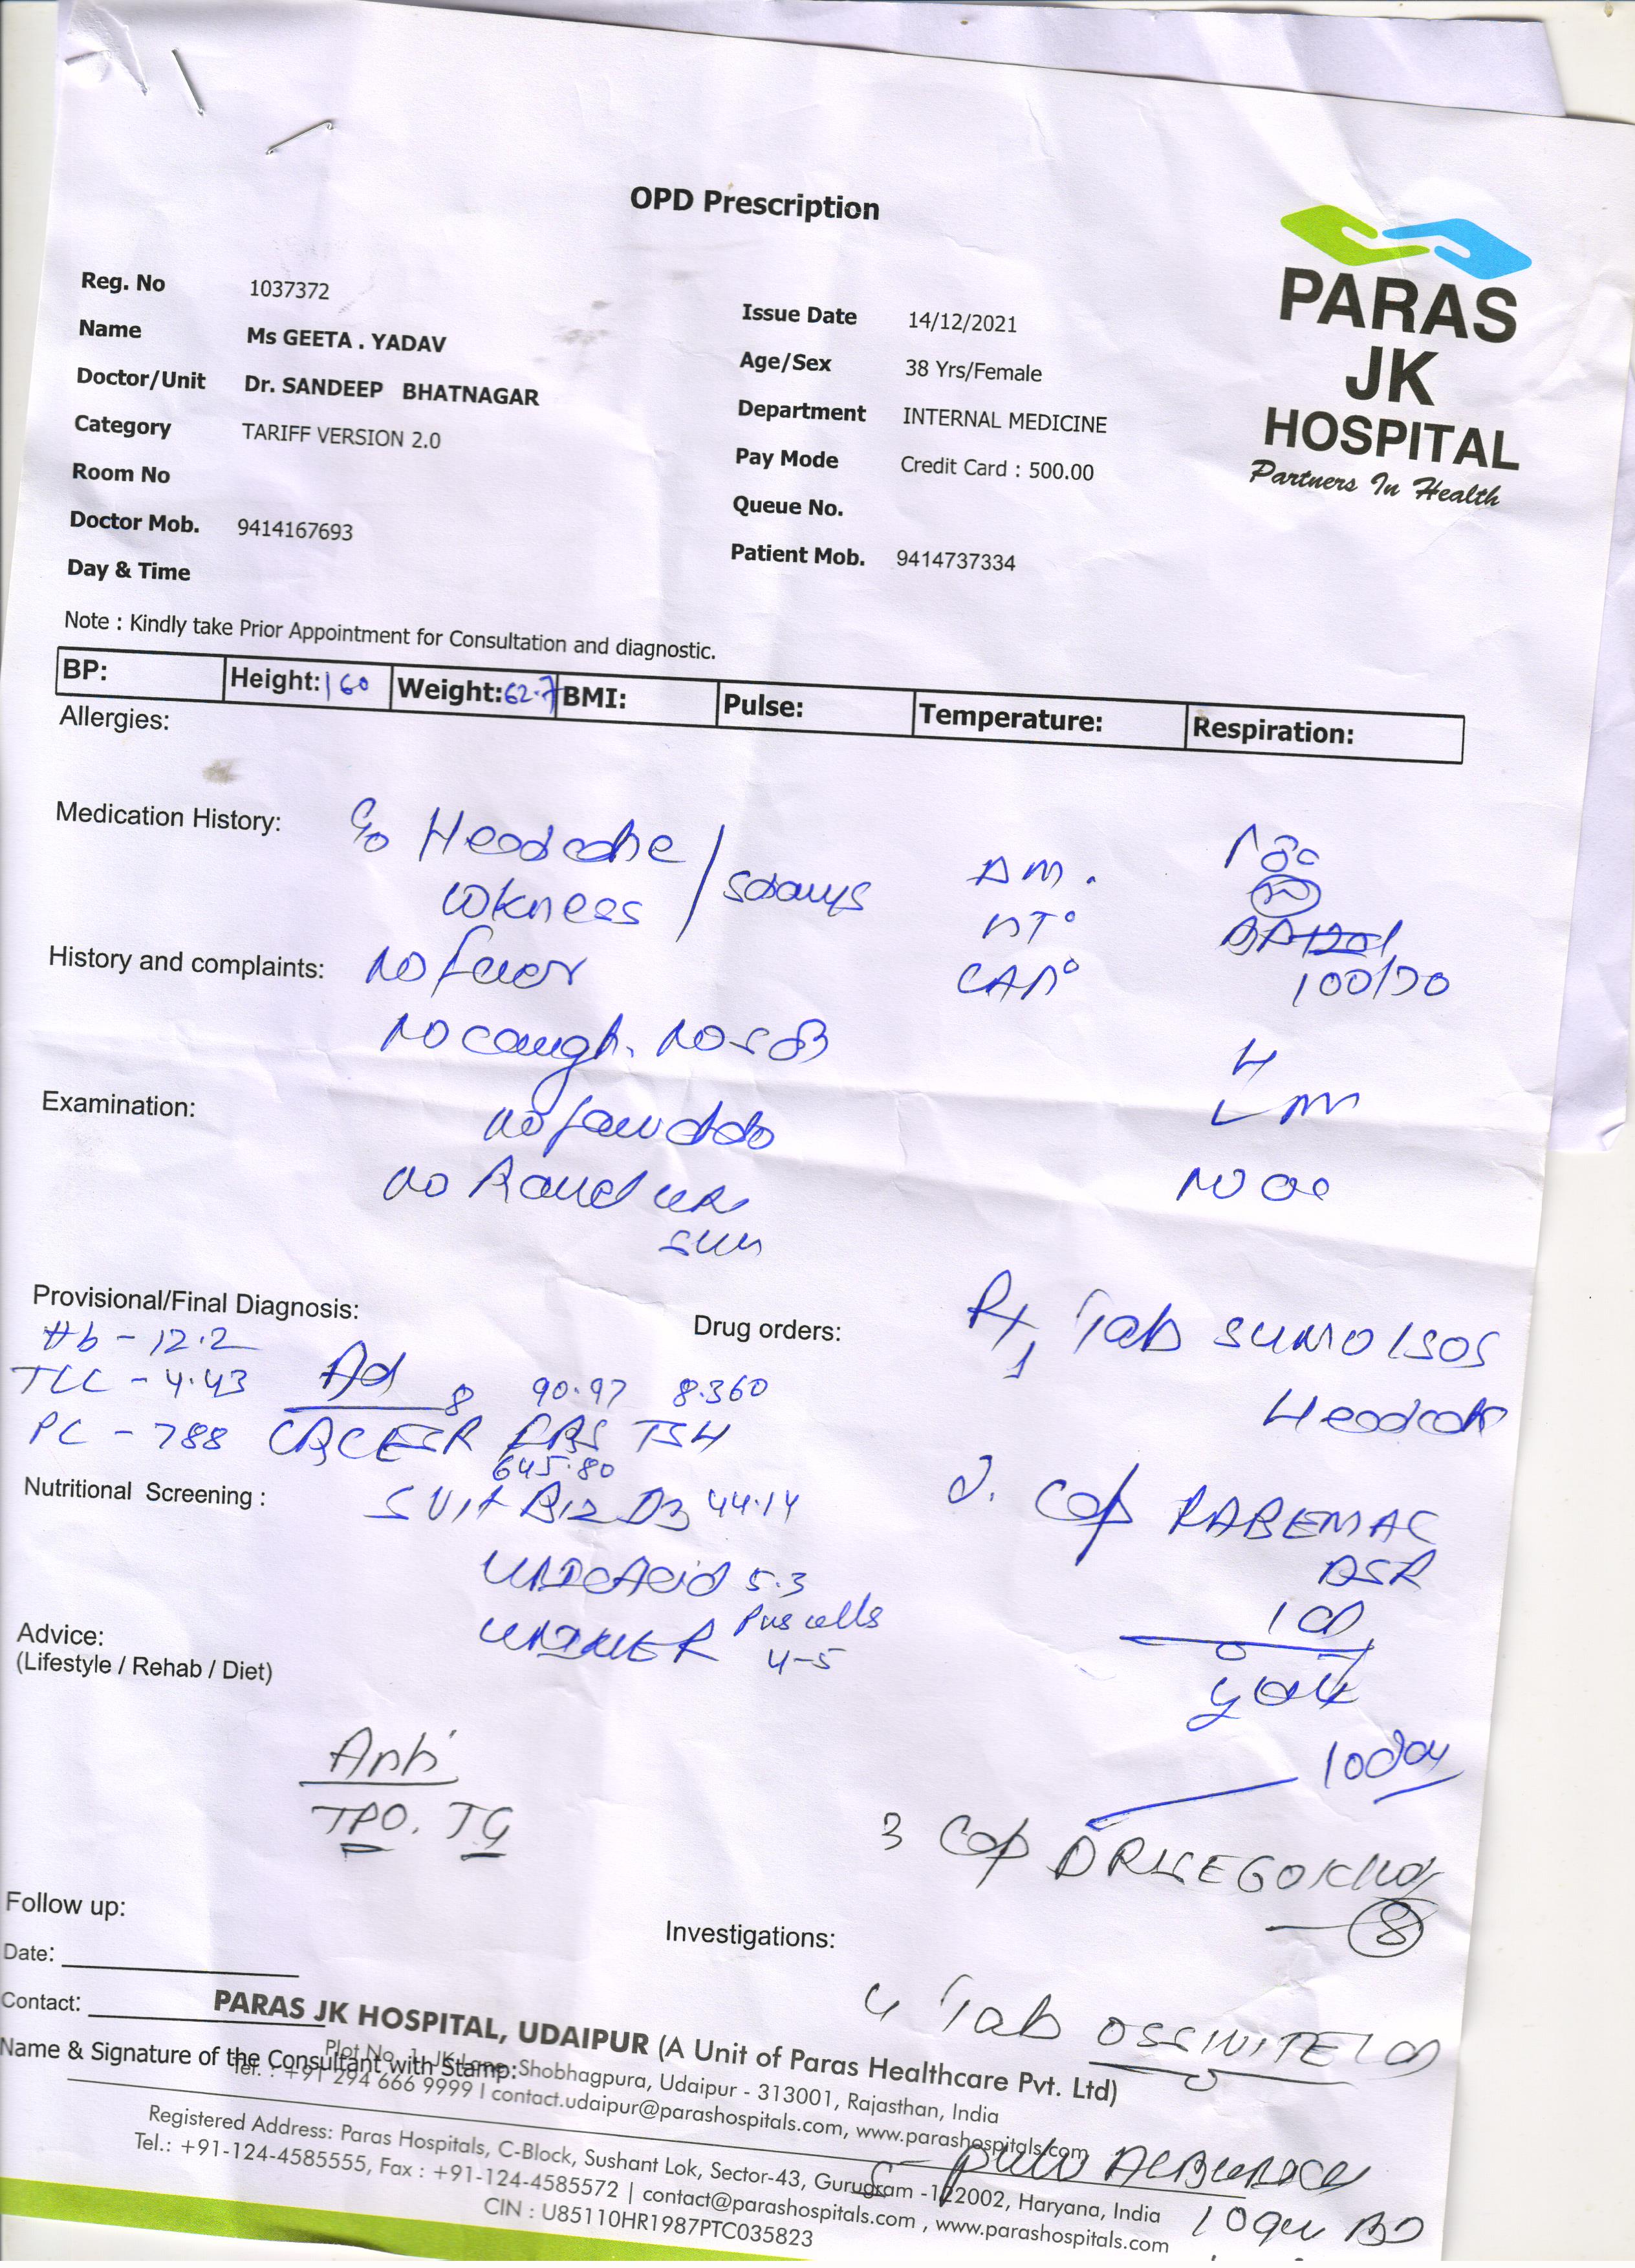 OPD Prescription
PARAS
JK
HOSPITAL
Partners In Health
Reg. No 1037372
Name Ms GEETA . YADAV
Doctor/Unit Dr. SANDEEP BHATNAGAR
Category TARIFF VERSION 2.0
Room No
Doctor Mob. 9414167693
Day & Time
Issue Date 14/12/2021
Age/Sex 38 Yrs/Female
Department INTERNAL MEDICINE
Pay Mode Credit Card : 500.00
Queue No.
Patient Mob. 9414737334
Note : Kindly take Prior Appointment for Consultation and diagnostic.
BP: Height: 160 Weight: 62.7 BMI: Pulse: Temperature: Respiration:
Allergies:
Medication History:
c/o Headache
wkness / 5days
DM.
HT°
CAD°
100/70
History and complaints: No fever
No cough. No SOB
Examination:
Provisional/Final Diagnosis:
Hb - 12.2
TLC - 4.43 Ad 8 90.97 8.360
PC - 788 CBC ESR FBS TSH
645.80
S Vit B12 D3 44.14
Uric Acid 5.3
Pus cells
4-5
Nutritional Screening :
Advice:
(Lifestyle / Rehab / Diet)
Anti
TPO. TG
Drug orders:
Rx
1 Tab SUMO 1 SOS
Headach
2. Cap RABEMAC
DSR
10day
3 Cap
8
4 Tab
10 BD
Follow up:
Date:
Contact:
Name & Signature of the Consultant with Stamp:
Investigations:
PARAS JK HOSPITAL, UDAIPUR (A Unit of Paras Healthcare Pvt. Ltd)
Plot No. 1, JK Lane, Shobhagpura, Udaipur - 313001, Rajasthan, India
Tel. : +91 294 666 9999 | contact.udaipur@parashospitals.com, www.parashospitals.com
Registered Address: Paras Hospitals, C-Block, Sushant Lok, Sector-43, Gurugram -122002, Haryana, India
Tel.: +91-124-4585555, Fax : +91-124-4585572 | contact@parashospitals.com , www.parashospitals.com
CIN : U85110HR1987PTC035823